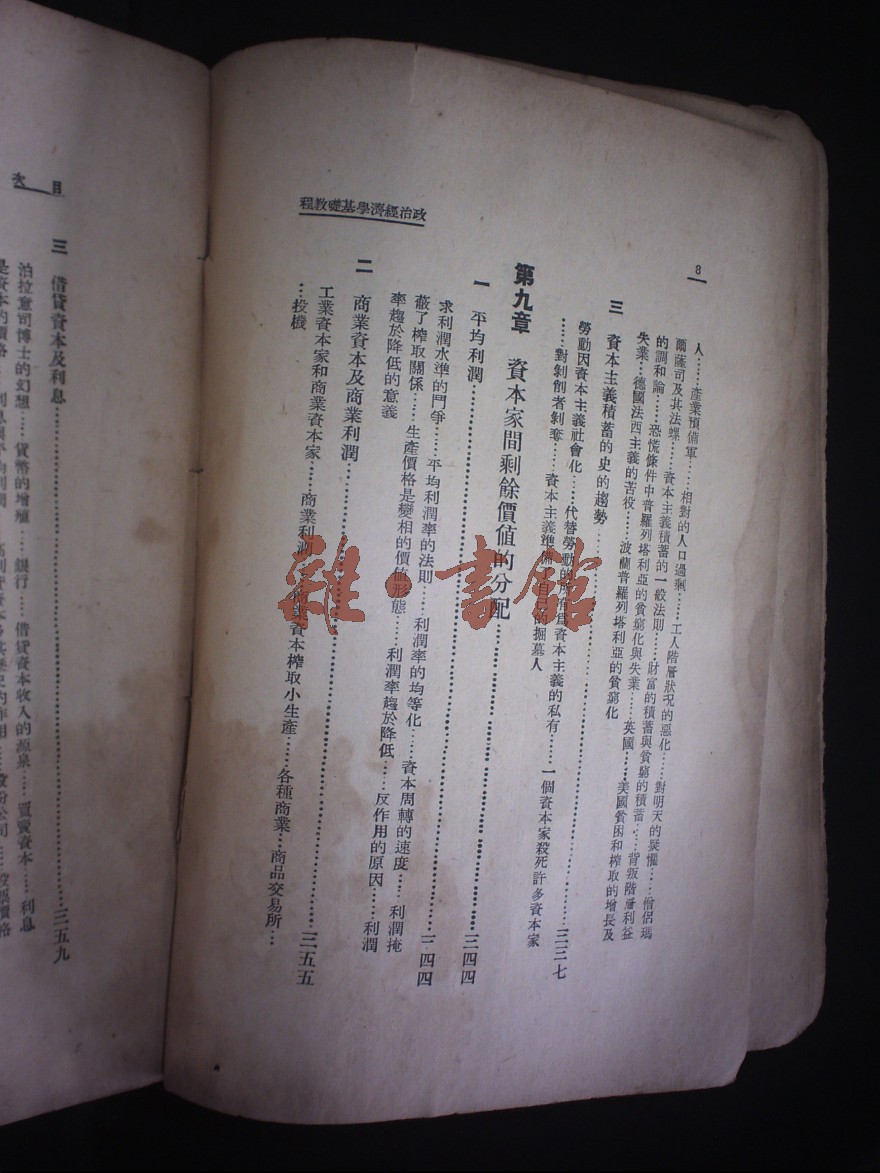 8
政治經濟學基礎教程
人……產業預備軍……相對的人口過剩……工人階層狀况的惡化……對明天的疑懼……僧侶瑪
爾薩司及其法螺……資本主義積蓄的一般法則……財富的積蓄與貧窮的積蓄……背叛階層利益
的調和論……恐慌條件中普羅列塔利亞的貧窮化與失業……英國……美國貧困和榨取的增長及
失業……德國法西主義的苦役……波蘭普羅列塔利亞的貧窮化
三 資本主義積蓄的史的趨勢……三三七
勞動因資本主義社會化……代替勞動的所有爲資本主義的私有……一個資本家殺死許多資本家
……對剝削者剝奪……資本主義準備了自己的掘墓人
第九章 資本家間剩餘價値的分配……三四四
一 平均利潤……三四四
求利潤水準的鬥爭……平均利潤率的法則……利潤率的均等化……資本周轉的速度……利潤掩
蔽了榨取關係……生產價格是變相的價値形態……利潤率趨於降低……反作用的原因……利潤
率趨於降低的意義
二 商業資本及商業利潤……三五五
工業資本家和商業資本家……商業利潤……商業資本榨取小生產……各種商業……商品交易所…
…投機
目次
三 借貸資本及利息……三五九
泊拉意司博士的幻想……貨幣的增殖……銀行……借貸資本收入的源泉……買賣資本……利息
是資本的價格
雜·書館